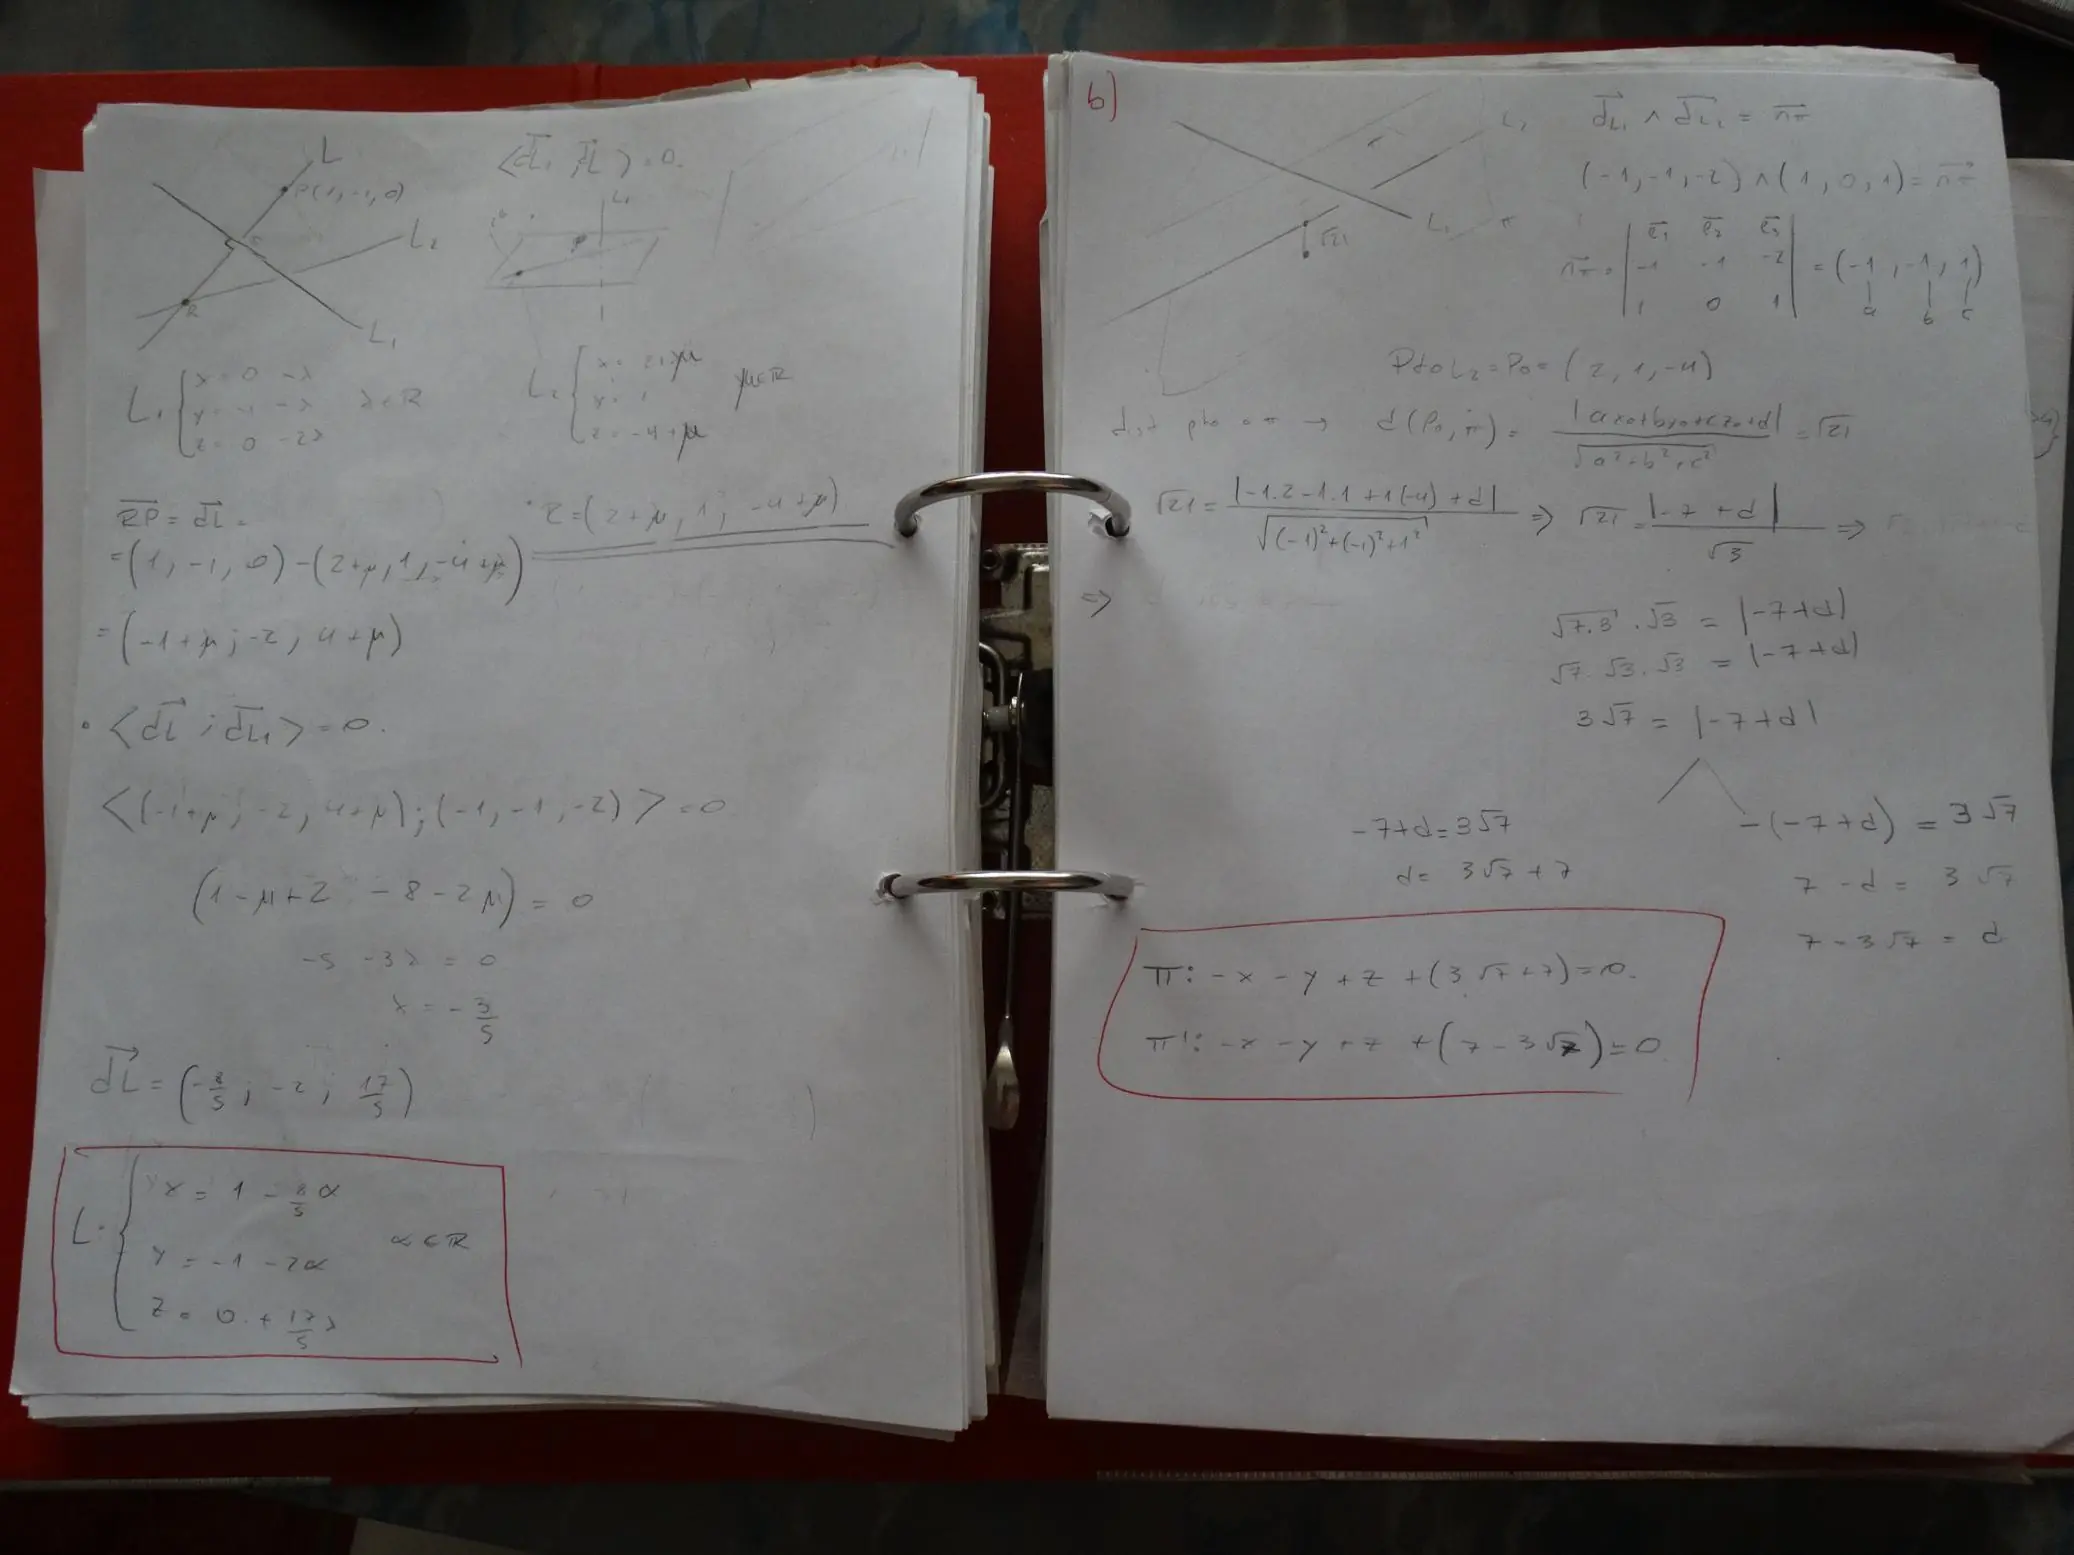 L
P(1,-1,0)
L₂
R
L₁
⟨d⃗L₁ ; d⃗L⟩ = 0.
L₁
P
L₁ { x = 0 -λ
y = -1 -λ λ∈R
z = 0 -2λ
L₂ { x = 2+μ
y = 1 μ∈R
z = -4+μ
R⃗P = d⃗L =
· R = (2+μ, 1; -4+μ)
= (1, -1, 0) - (2+μ, 1, -4+μ)
= (-1+μ; -2, 4+μ)
· ⟨d⃗L ; d⃗L₁⟩ = 0.
⟨(-1+μ; -2, 4+μ); (-1, -1, -2)⟩ = 0
(1-μ+2 -8-2μ) = 0
-5 -3λ = 0
λ = -3/5
d⃗L = (-8/5; -2; 17/5)
L: { x = 1 - 8/5 α
y = -1 -2α α∈R
z = 0 + 17/5 λ
b)
L₂
L₁
π
√21
d⃗L₁ ∧ d⃗L₂ = n⃗π
(-1, -1, -2) ∧ (1, 0, 1) = n⃗π
n⃗π = | e⃗₁ e⃗₂ e⃗₃ |
| -1 -1 -2 | = (-1, -1, 1)
| 1 0 1 |
a b c
Pto L₂ = P₀ = (2, 1, -4)
dist pto a π → d(P₀, π) = |ax₀+by₀+cz₀+d| / √(a²+b²+c²) = √21
√21 = |-1.2-1.1+1(-4)+d| / √((-1)²+(-1)²+1²) ⇒ √21 = |-7+d| / √3 ⇒
⇒
√7.3 . √3 = |-7+d|
√7 . √3 . √3 = |-7+d|
3√7 = |-7+d|
-7+d = 3√7
d = 3√7 + 7
-(-7+d) = 3√7
7 - d = 3√7
7 - 3√7 = d
π: -x - y + z + (3√7+7) = 0.
π': -x - y + z + (7 - 3√7) = 0